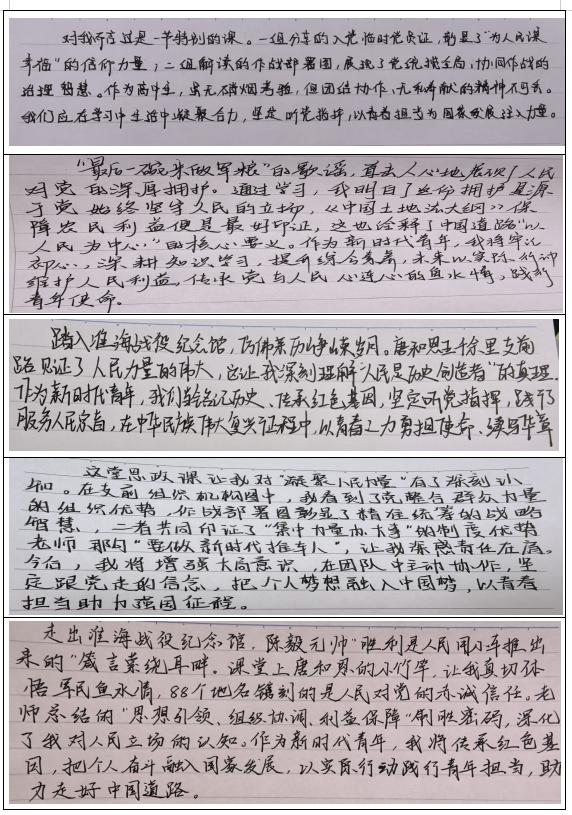 对我而言这是一节特别的课。一组分享的入党临时党员证，彰显了“为人民谋
幸福”的信仰力量；二组解读的作战部署图，展现了党统揽全局、协同作战的
治理智慧。作为高中生，虽无硝烟考验，但团结协作、无私奉献的精神不可丢。
我们应在学习中生活中凝聚合力，坚定听党指挥，以青春担当为国家发展注入力量。
“最后一碗米做军粮”的歌谣，直击人心地展现了人民
对党的深厚拥护。通过学习，我明白了这份拥护是源
于党始终坚守人民的立场，《中国土地法大纲》保
障农民利益便是最好印证，这也诠释了中国道路“以
人民为中心”的核心要义。作为新时代青年，我将牢记
初心，深耕知识学习，提升综合素养，未来以实际行动
维护人民利益，传承党与人民心连心的鱼水情，践行
青年使命。
踏入淮海战役纪念馆，仿佛亲历峥嵘岁月。唐和恩五千余里支前
路见证了人民力量的伟大，这让我深刻理解“人民是历史创造者”的真理。
作为新时代青年，我们铭记历史、传承红色基因，坚定听党指挥，践行
服务人民宗旨，在中华民族伟大复兴征程中，以青春之力勇担使命、续写华章
这堂思政课让我对“凝聚人民力量”有了深刻认
知。在支前组织机构图中，我看到了党整合群众力量
的组织优势，作战部署图彰显了精准统筹的战略
智慧，二者共同印证了“集中力量办大事”的制度优势
老师那句“要做新时代推车人”，让我深感责任在肩。
今后，我将增强大局意识，在团队中主动协作，坚
定跟党走的信念，把个人梦想融入中国梦，以青春
担当助力强国征程。
走出淮海战役纪念馆，陈毅元帅“胜利是人民用小车推出
来的”箴言萦绕耳畔。课堂上唐和恩的小竹竿，让我真切体
悟军民鱼水情，88个地名镌刻的是人民对党的赤诚信任。老
师总结的“思想引领、组织协调、利益保障”制胜密码，深化
了我对人民立场的认知。作为新时代青年，我将传承红色基
因，把个人奋斗融入国家发展，以实际行动践行青年担当，助
力走好中国道路。